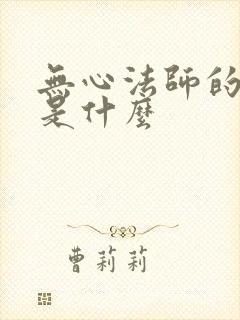 無心法師的
是什麼
曹莉莉